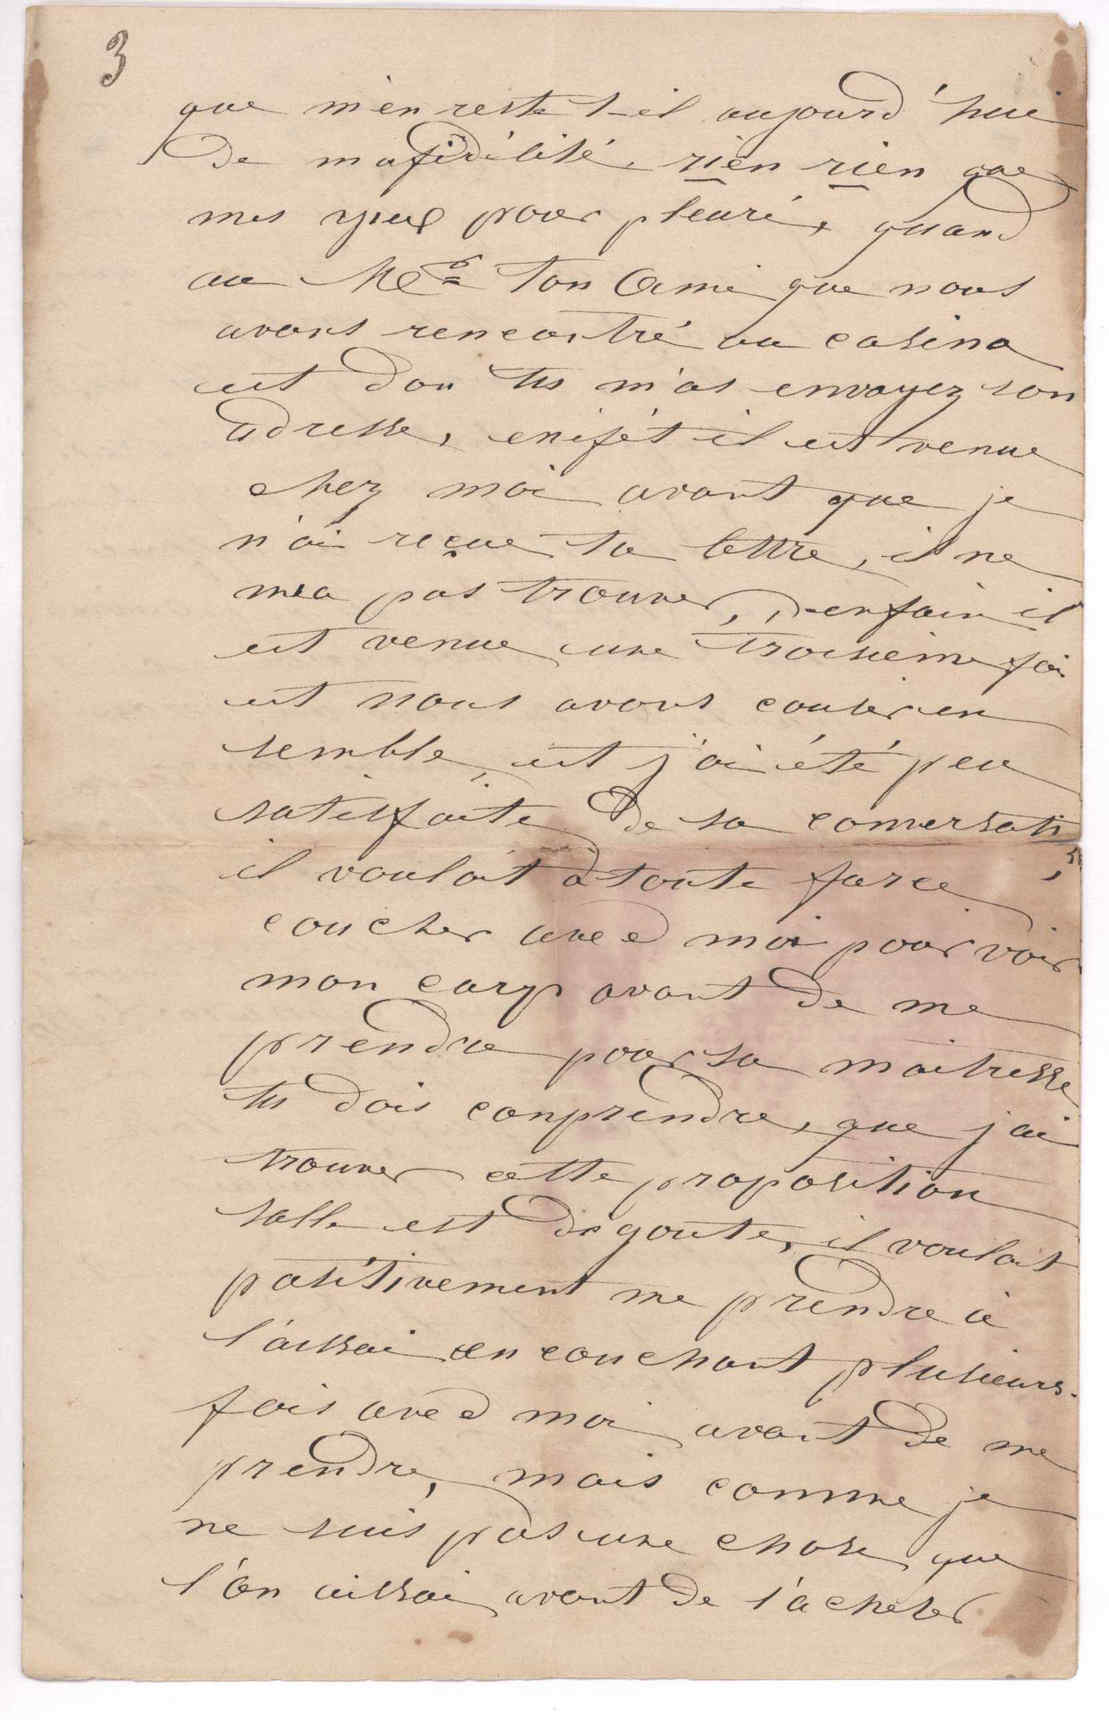 3
que m'en reste t-il aujourd'hui
de ma fidélité, rien rien que
mes yeux pour pleuré, quand
au Ton Ami que nous
avons rencontré au casino
est don tu m'as envoyez son
adresse, enifét il est venue
chez moi avant que je
n'ai reçue ta lettre, il ne
m'a pas trouver, enfain il
est venue une troisième foi
est nous avons couser en
semble, est j'ai été peu
satisfaite de sa conversation,
il voulait à toute force
coucher aved moi pour voir
mon corp avant de me
prendre pour sa maitresse
tu dois conprendre, que j'ai
trouver cette proposition
salle est dégoute, il voulait
positivement me prendre à
l'aissai en couchant plusieurs
fois aved moi avant de me
prendre, mais comme je
ne suis pas une chose que
l'on aissai avant de l'acheter